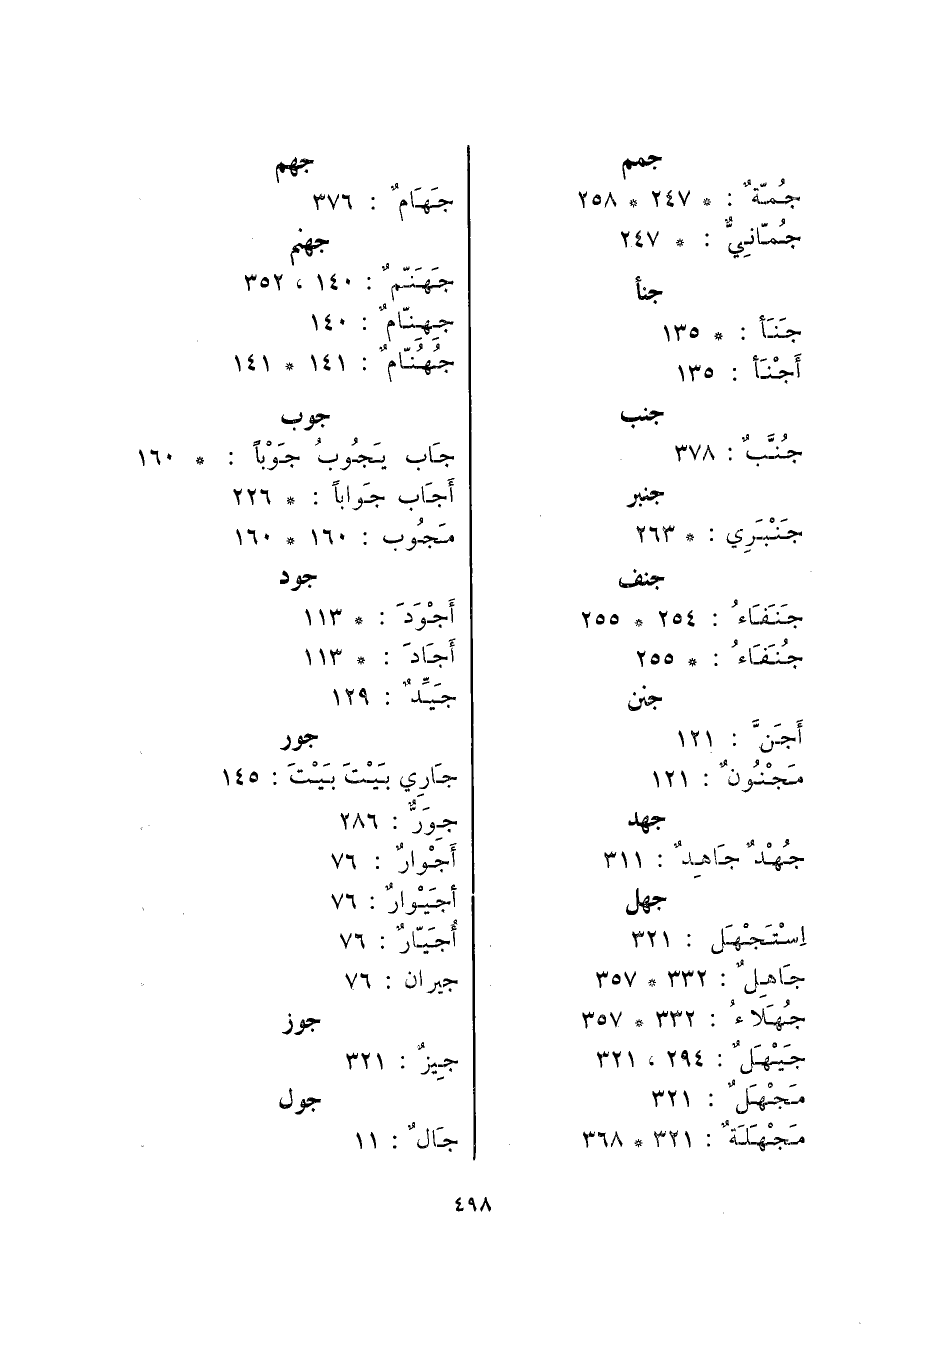 جمم
جُمّةٌ : * ٢٤٧ * ٢٥٨
جُمّانِيٌّ : * ٢٤٧
جنأ
جَنَأ : * ١٣٥
أَجْنَأ : ١٣٥
جنب
جُنَّبٌ : ٣٧٨
جنبر
جَنْبَرِي : * ٢٦٣
جنف
جَنَفَاءُ : ٢٥٤ * ٢٥٥
جُنَفَاءُ : * ٢٥٥
جنن
أَجَنَّ : ١٢١
مَجْنُونٌ : ١٢١
جهد
جُهْدٌ جَاهِدٌ : ٣١١
جهل
اِسْتَجْهَل : ٣٢١
جَاهِلٌ : ٣٣٢ * ٣٥٧
جُهَلَاءُ : ٣٣٢ * ٣٥٧
جَيْهَلٌ : ٢٩٤ ، ٣٢١
مَجْهَلٌ : ٣٢١
مَجْهَلَةٌ : ٣٢١ * ٣٦٨
جهم
جَهَامٌ : ٣٧٦
جهنم
جَهَنّمٌ : ١٤٠ ، ٣٥٢
جِهِنّامٌ : ١٤٠
جُهُنّامٌ : ١٤١ * ١٤١
جوب
جَاب يَجُوبُ جَوْباً : * ١٦٠
أَجَاب جَواباً : * ٢٢٦
مَجُوب : ١٦٠ * ١٦٠
جود
أَجْوَدَ : * ١١٣
أَجَادَ : * ١١٣
جَيِّدٌ : ١٢٩
جور
جَارِي بَيْتَ بَيْتَ : ١٤٥
جِوَرٌّ : ٢٨٦
أَجْوارٌ : ٧٦
أجَيْوارٌ : ٧٦
أُجَيّارٌ : ٧٦
جيران : ٧٦
جوز
جِيزٌ : ٣٢١
جول
جَالٌ : ١١
٤٩٨